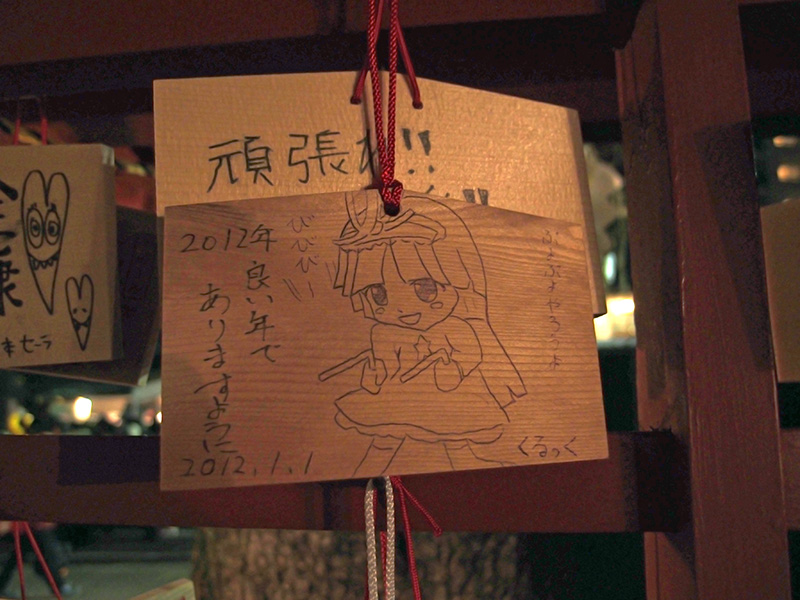 頑張れ!!
2012年
良い年で
ありますように
2012.1.1
びびびぃ
ぷよぷよやろうよ
くるっく
セーラ